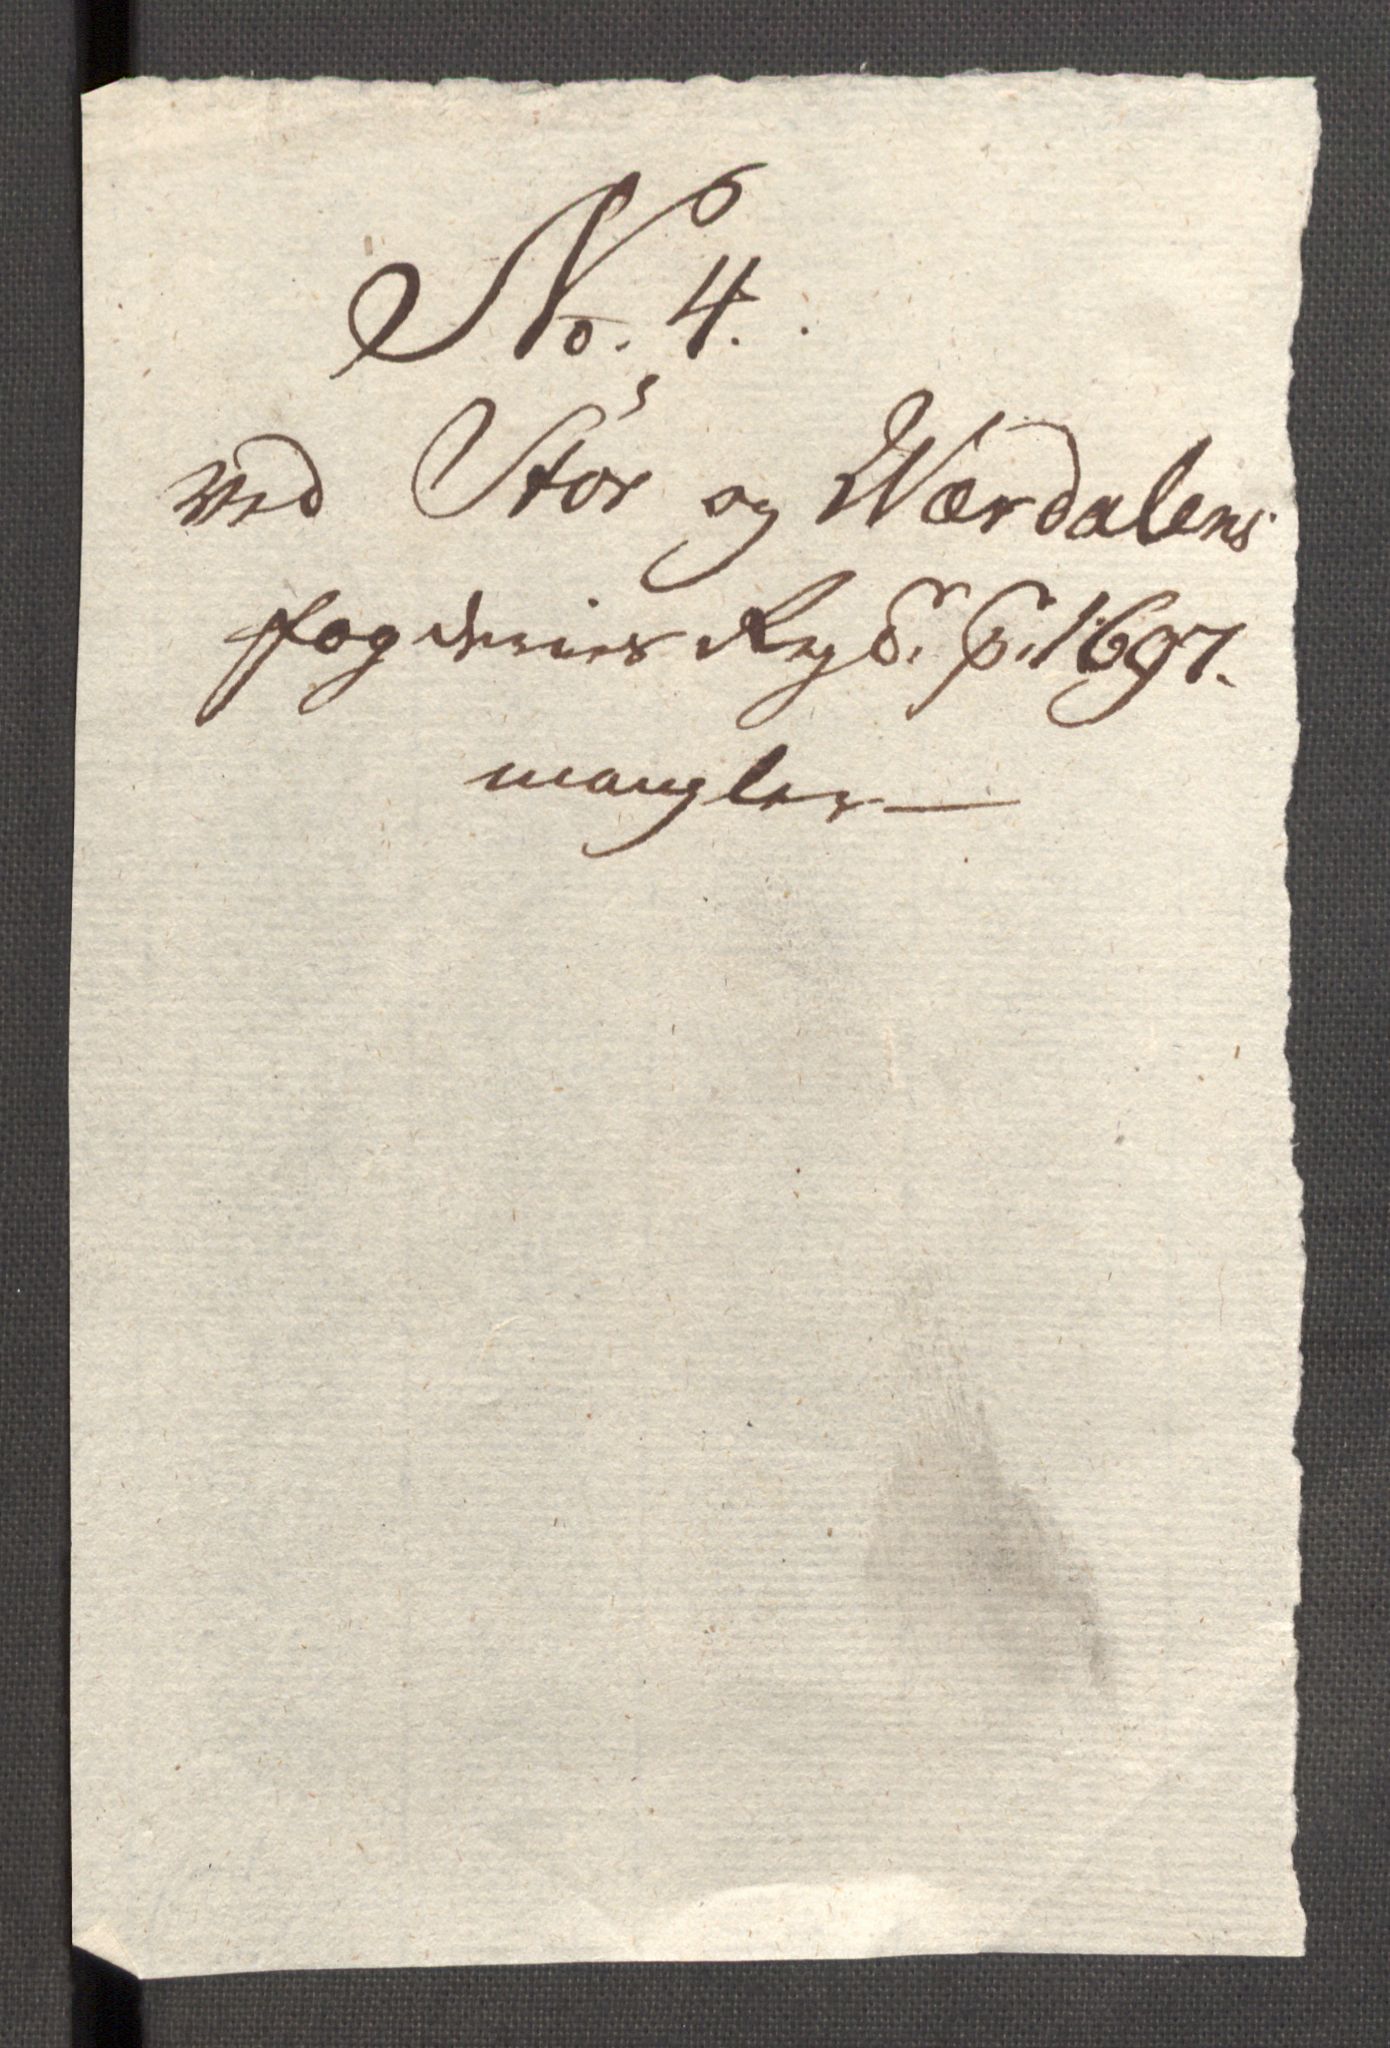 No. 4.
ved Stør og Værdalens
fogderies Regsk. p. 1697.
mangler